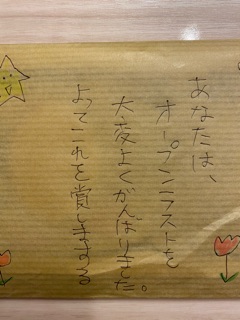 あなたは、
オープンラストを
大変よくがんばりました。
よってこれを賞しまする